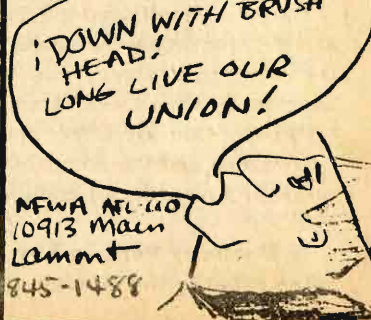 ¡DOWN WITH BRUSH
HEAD!
LONG LIVE OUR
UNION!
NFWA AFL-CIO
10913 Main
Lamont
845-1488